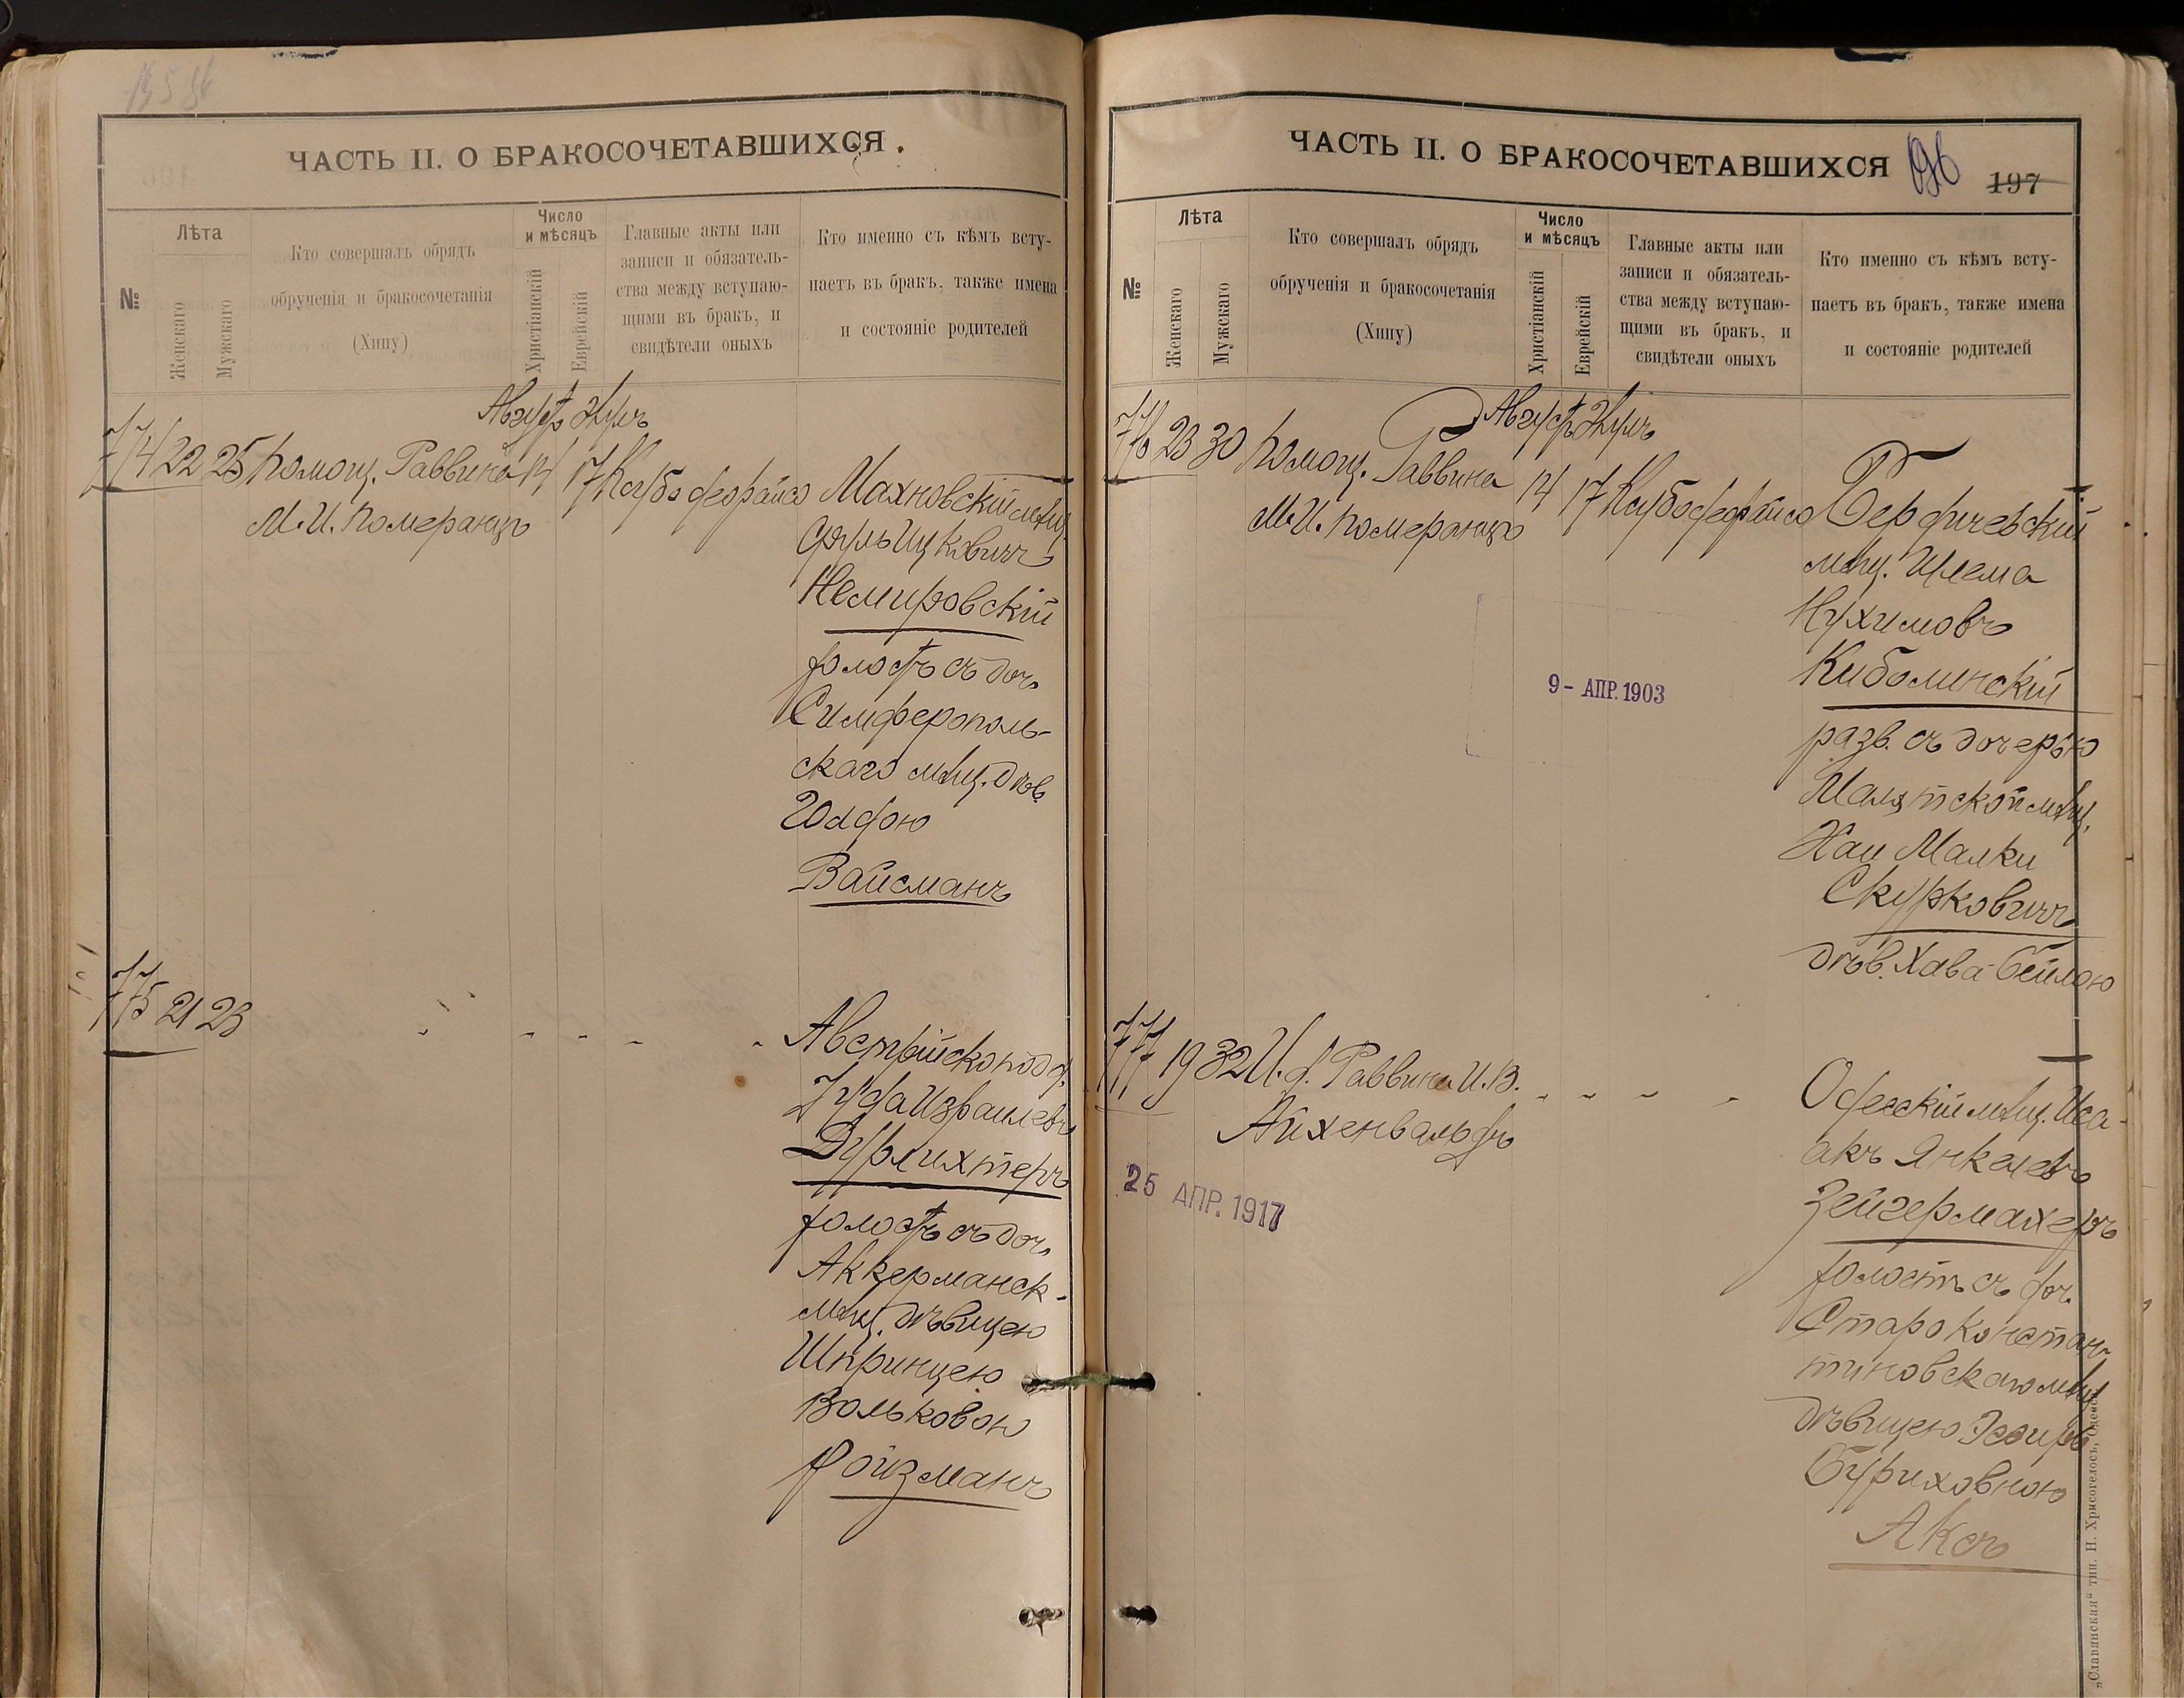 ЧАСТЬ II. О БРАКОСОЧЕТАВШИХСЯ.
№
Лѣта
Женскаго
Мужскаго
Кто совершалъ обрядъ
обрученія и бракосочетанія
(Хипу)
Число
и мѣсяцъ
Христіанскій
Еврейскій
Главные акты или
записи и обязатель-
ства между вступаю-
щими въ бракъ, и
свидѣтели оныхъ
Кто именно съ кѣмъ всту-
паетъ въ бракъ, также имена
и состояніе родителей
Августъ
774 22 25 Помощ. Раввина 14 17
М. И. Померанцъ
Махновскій мѣщ.
Ицковичъ
Немировскій
холостъ съ доч.
Симферополь-
скаго мѣщ. дѣв.
Вайсманъ
775 21 23
Австрійско под д.
Израилевъ
Дурлихтеръ
холостъ съ доч.
Аккерманск.
мѣщ. дѣвицею
Шпринцею
Вольковою
Ройзманъ
ЧАСТЬ II. О БРАКОСОЧЕТАВШИХСЯ
196
197
№
Лѣта
Женскаго
Мужскаго
Кто совершалъ обрядъ
обрученія и бракосочетанія
(Хипу)
Число
и мѣсяцъ
Христіанскій
Еврейскій
Главные акты или
записи и обязатель-
ства между вступаю-
щими въ бракъ, и
свидѣтели оныхъ
Кто именно съ кѣмъ всту-
паетъ въ бракъ, также имена
и состояніе родителей
Августъ
776 23 30 Помощ. Раввина 14 17
М. И. Померанцъ
Бердичевскій
мѣщ. Шлема
Нухимовъ
разв. съ дочерью
мѣщ.
Хаи Малки
Скурковичъ
дѣв. Хава-Бейлою
9- АПР. 1903
777 19 32 И. д. Раввина И. В.
Айхенвальдъ
25 АПР. 1917
Одесскій мѣщ. Иса-
акъ Янкелевъ
Зейгермахеръ
холостъ съ доч.
Староконстан-
тиновскаго мѣщ.
дѣвицею Эсѳирь
Буриховною
Аксъ
„Славянская“ тип. Н. Хрисогелосъ, Одесса